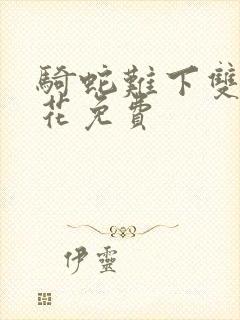 騎蛇難下雙
花免費
伊靈